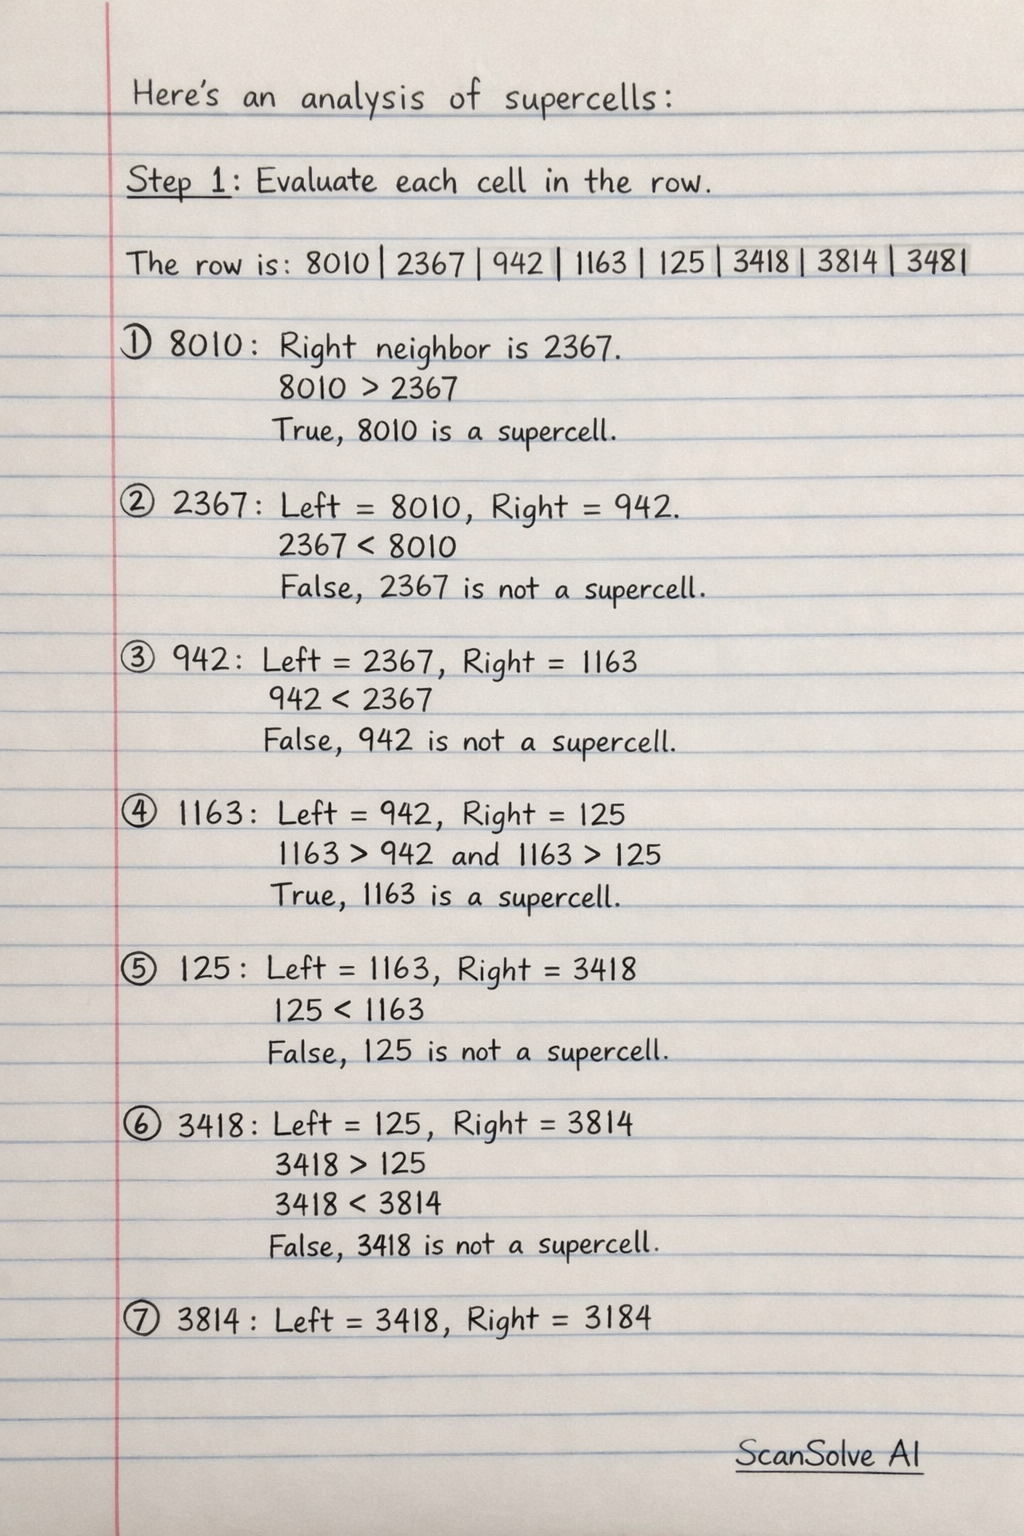 Here's an analysis of supercells:
Step 1: Evaluate each cell in the row.
The row is: 8010 | 2367 | 942 | 1163 | 125 | 3418 | 3814 | 3481
① 8010: Right neighbor is 2367.
8010 > 2367
True, 8010 is a supercell.
② 2367: Left = 8010, Right = 942.
2367 < 8010
False, 2367 is not a supercell.
③ 942: Left = 2367, Right = 1163
942 < 2367
False, 942 is not a supercell.
④ 1163: Left = 942, Right = 125
1163 > 942 and 1163 > 125
True, 1163 is a supercell.
⑤ 125: Left = 1163, Right = 3418
125 < 1163
False, 125 is not a supercell.
⑥ 3418: Left = 125, Right = 3814
3418 > 125
3418 < 3814
False, 3418 is not a supercell.
⑦ 3814: Left = 3418, Right = 3184
ScanSolve AI